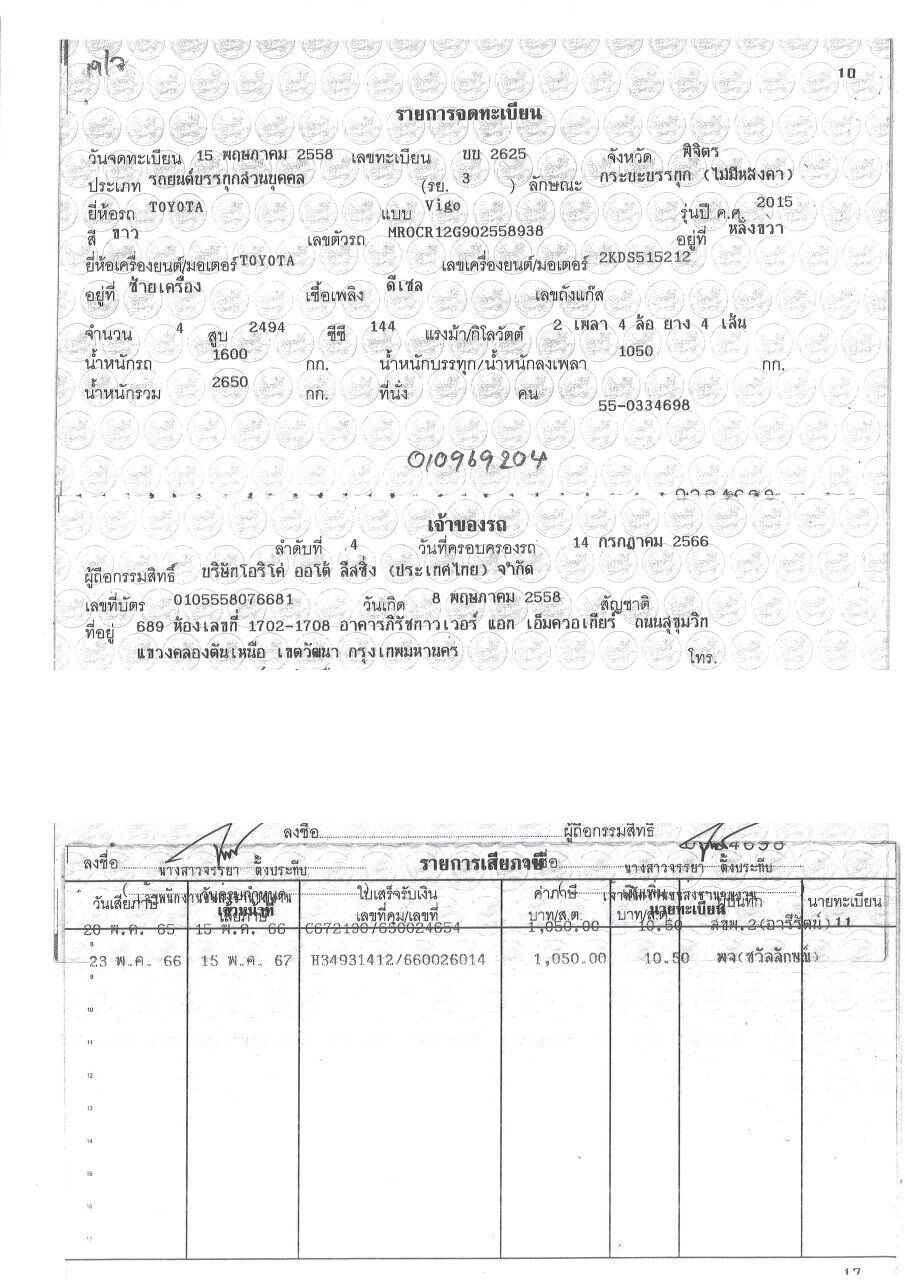 19/7
10
รายการจดทะเบียน
วันจดทะเบียน 15 พฤษภาคม 2558 เลขทะเบียน บบ 2625 จังหวัด พิจิตร
ประเภท รถยนต์บรรทุกส่วนบุคคล (รย. 3 ) ลักษณะ กระบะบรรทุก (ไม่มีหลังคา)
ยี่ห้อรถ TOYOTA แบบ Vigo รุ่นปี ค.ศ. 2015
สี ขาว เลขตัวรถ MROCR12G902558938 อยู่ที่ หลังขวา
ยี่ห้อเครื่องยนต์/มอเตอร์ TOYOTA เลขเครื่องยนต์/มอเตอร์ 2KDS515212
อยู่ที่ ซ้ายเครื่อง เชื้อเพลิง ดีเซล เลขถังแก๊ส
จำนวน 4 สูบ 2494 ซีซี 144 แรงม้า/กิโลวัตต์ 2 เพลา 4 ล้อ ยาง 4 เส้น
น้ำหนักรถ 1600 กก. น้ำหนักบรรทุก/น้ำหนักลงเพลา 1050 กก.
น้ำหนักรวม 2650 กก. ที่นั่ง คน
55-0334698
010969204
เจ้าของรถ
ลำดับที่ 4 วันที่ครอบครองรถ 14 กรกฎาคม 2566
ผู้ถือกรรมสิทธิ์ บริษัทโอริโค่ ออโต้ ลีสซิ่ง (ประเทศไทย) จำกัด
เลขที่บัตร 0105558076681 วันเกิด 8 พฤษภาคม 2558 สัญชาติ
ที่อยู่ 689 ห้องเลขที่ 1702-1708 อาคารภิรัชทาวเวอร์ แอท เอ็มควอเทียร์ ถนนสุขุมวิท
แขวงคลองตันเหนือ เขตวัฒนา กรุงเทพมหานคร โทร.
ลงชื่อ ผู้ถือกรรมสิทธิ์
ลงชื่อ นางสาวจรรยา ตั้งประทีบ รายการเสียภาษี นางสาวจรรยา ตั้งประทีบ
วันเสียภาษี ใบเสร็จรับเงิน ค่าภาษี เงินเพิ่ม นายทะเบียน
เจ้าหน้าที่ เลขที่คุม/เลขที่ บาท/ส.ต. บาท/ส.ต. นายทะเบียน
20 พ.ค. 65 15 พ.ค. 66 1,050.00 10.50 11
8
23 พ.ค. 66 15 พ.ค. 67 H34931412/660026014 1,050.00 10.50 พจ(ชวัลลักษณ์)
9
10
11
12
13
14
15
16
17
17